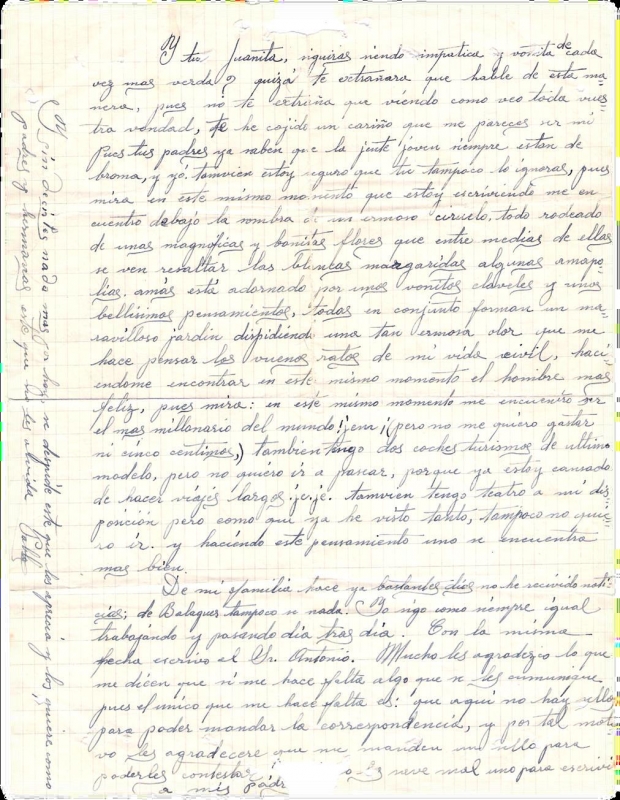 Y tu Juanita, siguiras siendo simpatica y vonita de cada
vez mas verda? quizá te extrañara que hable de esta ma-
nera, pues no te extriña que viendo como veo toda vues-
tra vondad, te he cojido un cariño que me pareces ser mi
Pues tus padres ya saben que la jente joven siempre estan de
broma, y yó tamvien estoy seguro que tu tampoco lo ignoras, pues
mira en este mismo momento que estoy escriviendo me en-
cuentro debajo la sombra di un ermoso ciruelo, todo rodeado
de unas magnificas y bonitas flores que entre medias de ellas
se ven resaltar las blancas margaridas algunas amapo-
lias. amás está adornado por unos vonitos claveles y unos
bellisimos pensamientos, todas en conjunto forman un ma-
ravilloso jardin dispidiendi una tan ermosa olor que me
hace pensar los vuenos ratos de mi vida civil, haci-
endome encontrar en este mismo momento el hombre mas
feliz, pues mira: en este mismo momento me encuentro ser
el mas millonario del mundo! (pero no me quiero gastar
ni cinco centimos,) tambien tengo dos coches turismos de ultimo
modelo, pero no quiero ir a pascar, porque ya estoy cansado
de hacer viajes largos jeje. tamvien tengo teatro a mi dis-
posición pero como que ya he visto tanto, tampoco no quie-
ro ir. y haciendo este pensamiento uno se encuentra
mas bien.
De mi familia hace ya bastantes dias no he recivido noti-
cias; de Balaguer tampoco se nada. Yo sigo como siempre igual
trabajando y pasando dia tras dia. Con la misma
fecha escrivo el Sr. Antonio. Mucho les agradezco lo que
me dicen que si me hace falta algo que se les comunique
pues el unico que me hace falta es: que aqui no hay sello
para poder mandar la correspondencia, y por tal moti-
vo les agradecere que me manden un sello para
poderles contestar
a mis padr
o les sirve mal uno para escrivi
Y sin decirles nada mas por hoy se despide este que los aprecia y los quiere como
padres y hermanas este que no les olvida